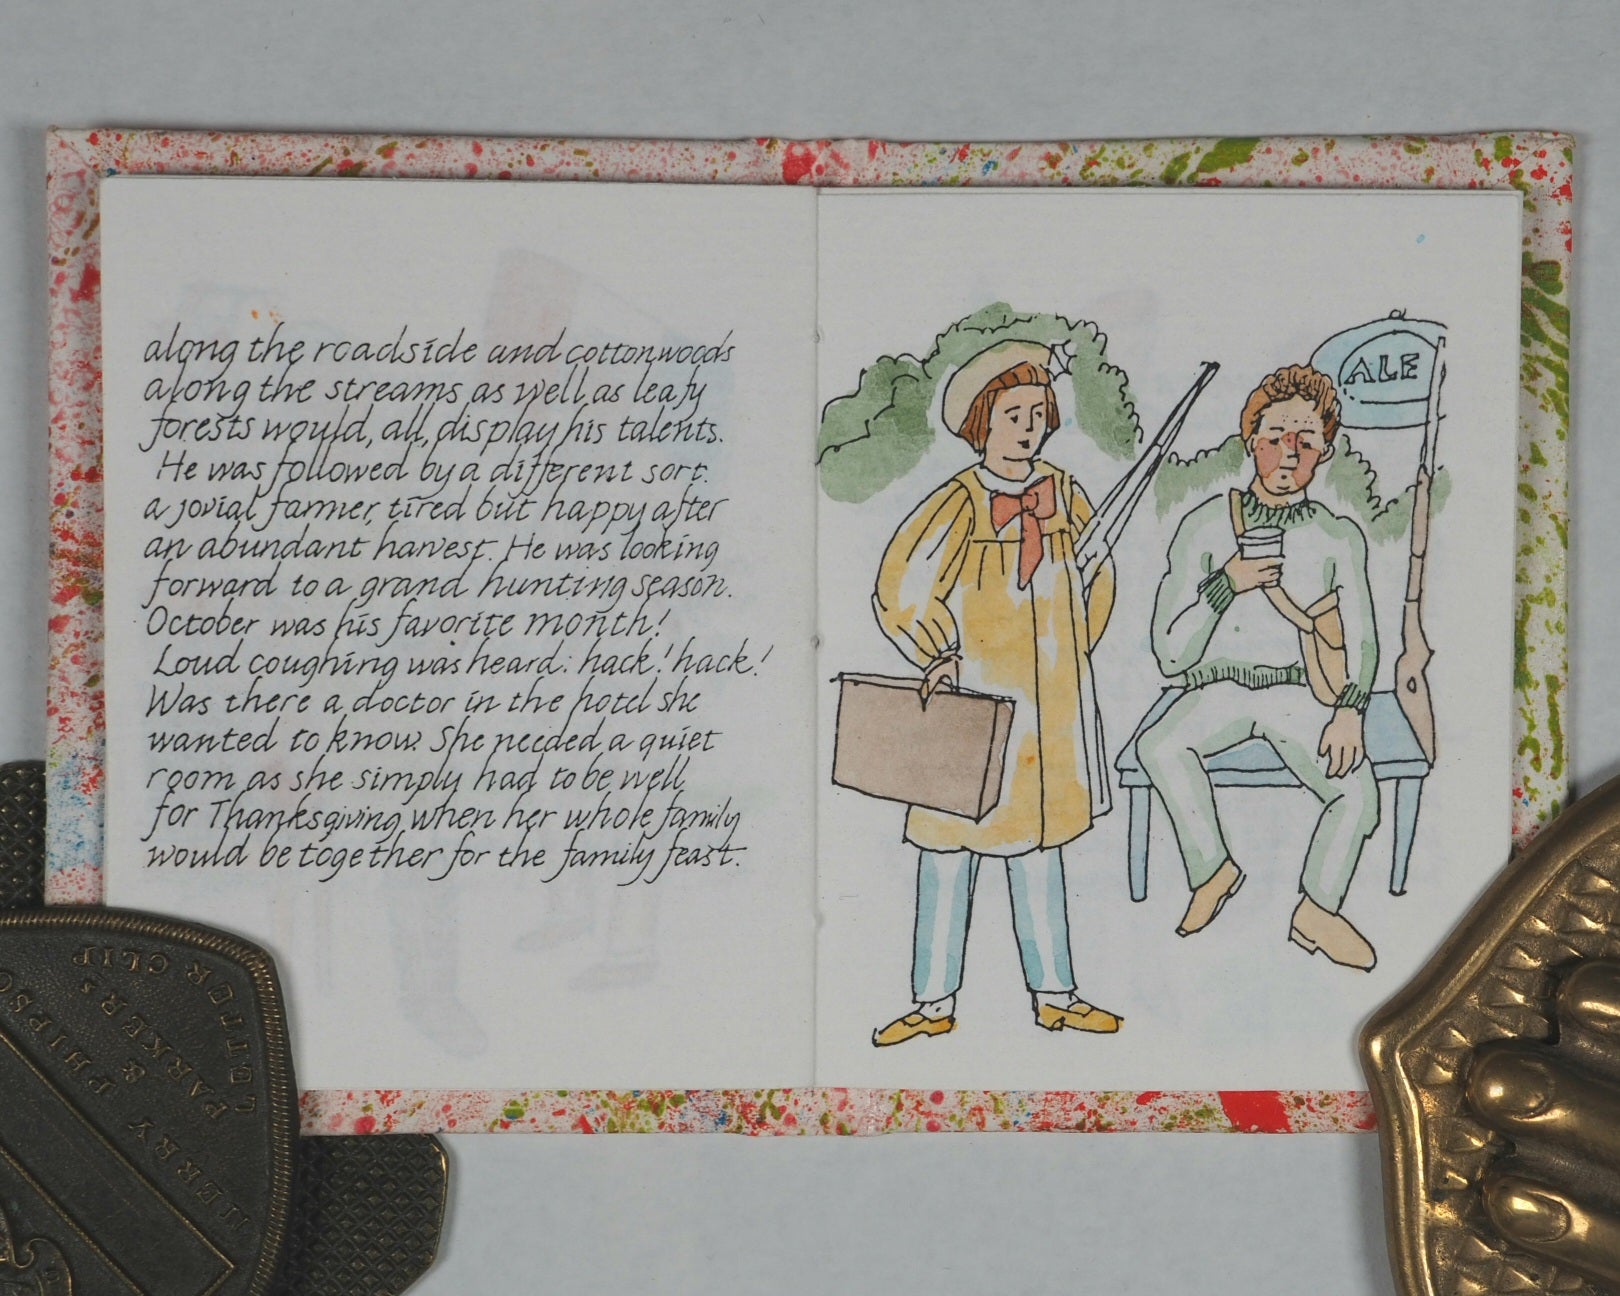 along the roadside and cottonwoods
along the streams as well as leafy
forests would, all, display his talents.
He was followed by a different sort:
a jovial farmer, tired but happy after
an abundant harvest. He was looking
forward to a grand hunting season.
October was his favorite month!
Loud coughing was heard: hack! hack!
Was there a doctor in the hotel she
wanted to know? She needed a quiet
room as she simply had to be well
for Thanksgiving when her whole family
would be together for the family feast.
ALE
MERRY PHIPSO
& PARKERS
LETTER CLIP